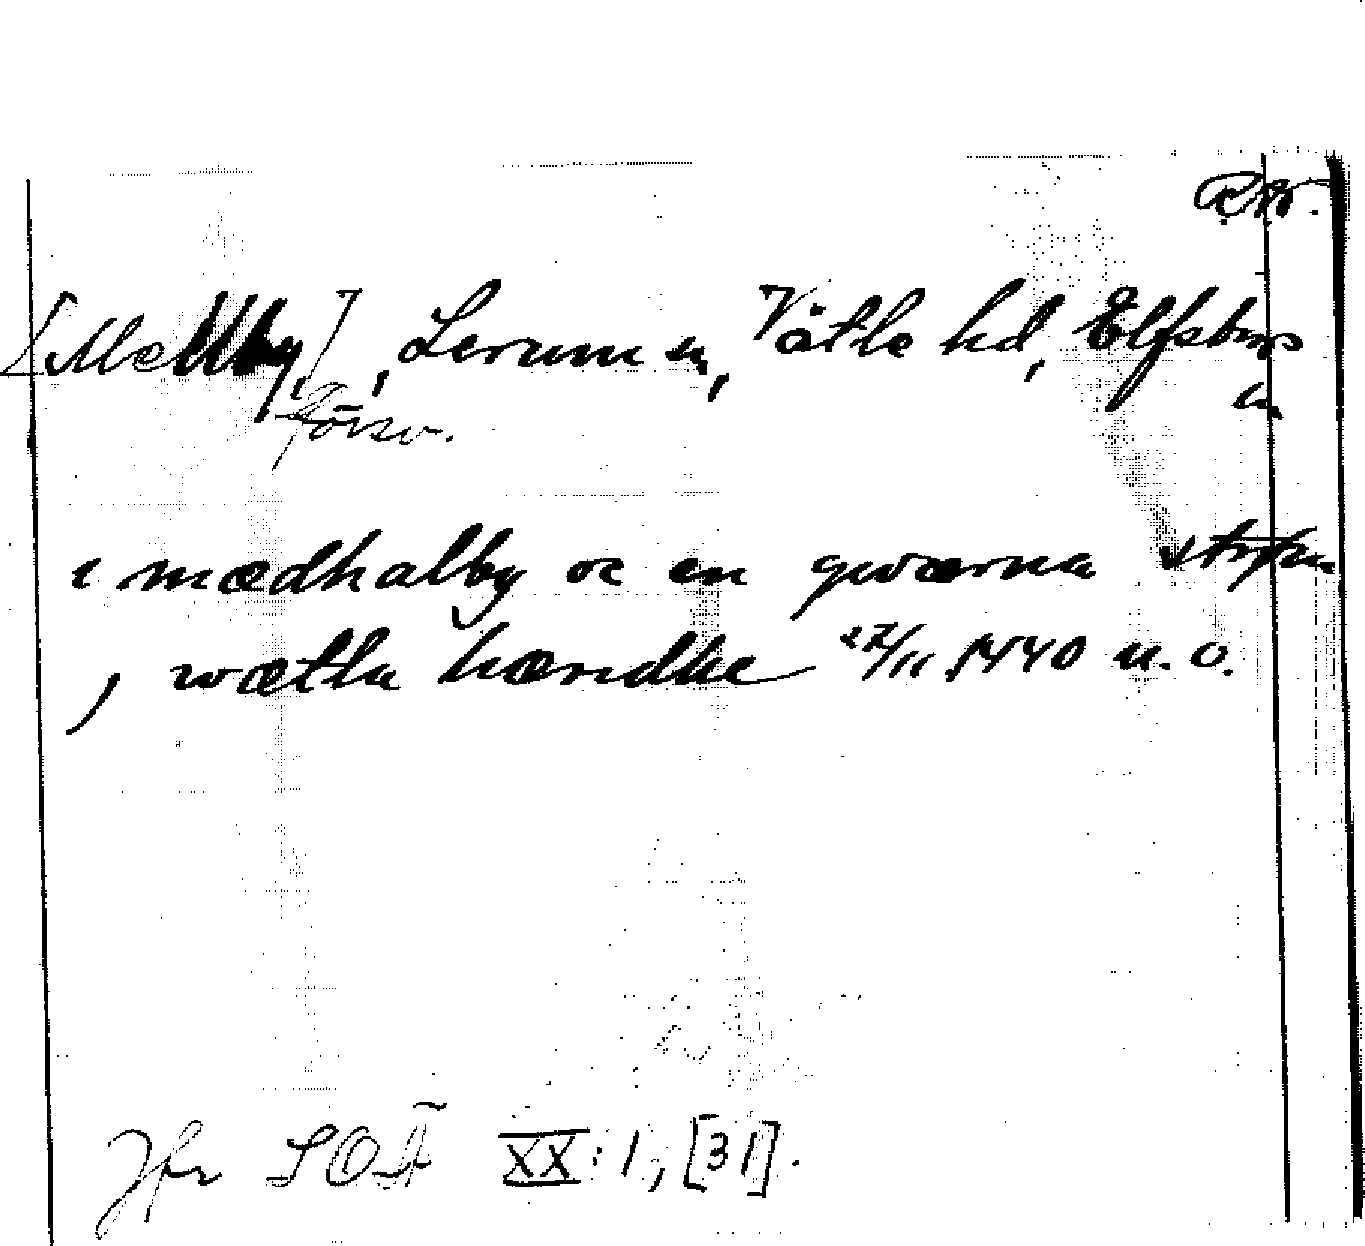 [Mellby], Lerum sn, Vätle hd, Elfsborgs
ln
försv.
i mædhalby oc en qwærna strøm
, wætla hæredhe 27/11 1440 u. o.
Jfr SOÄ XX: 1, [31].